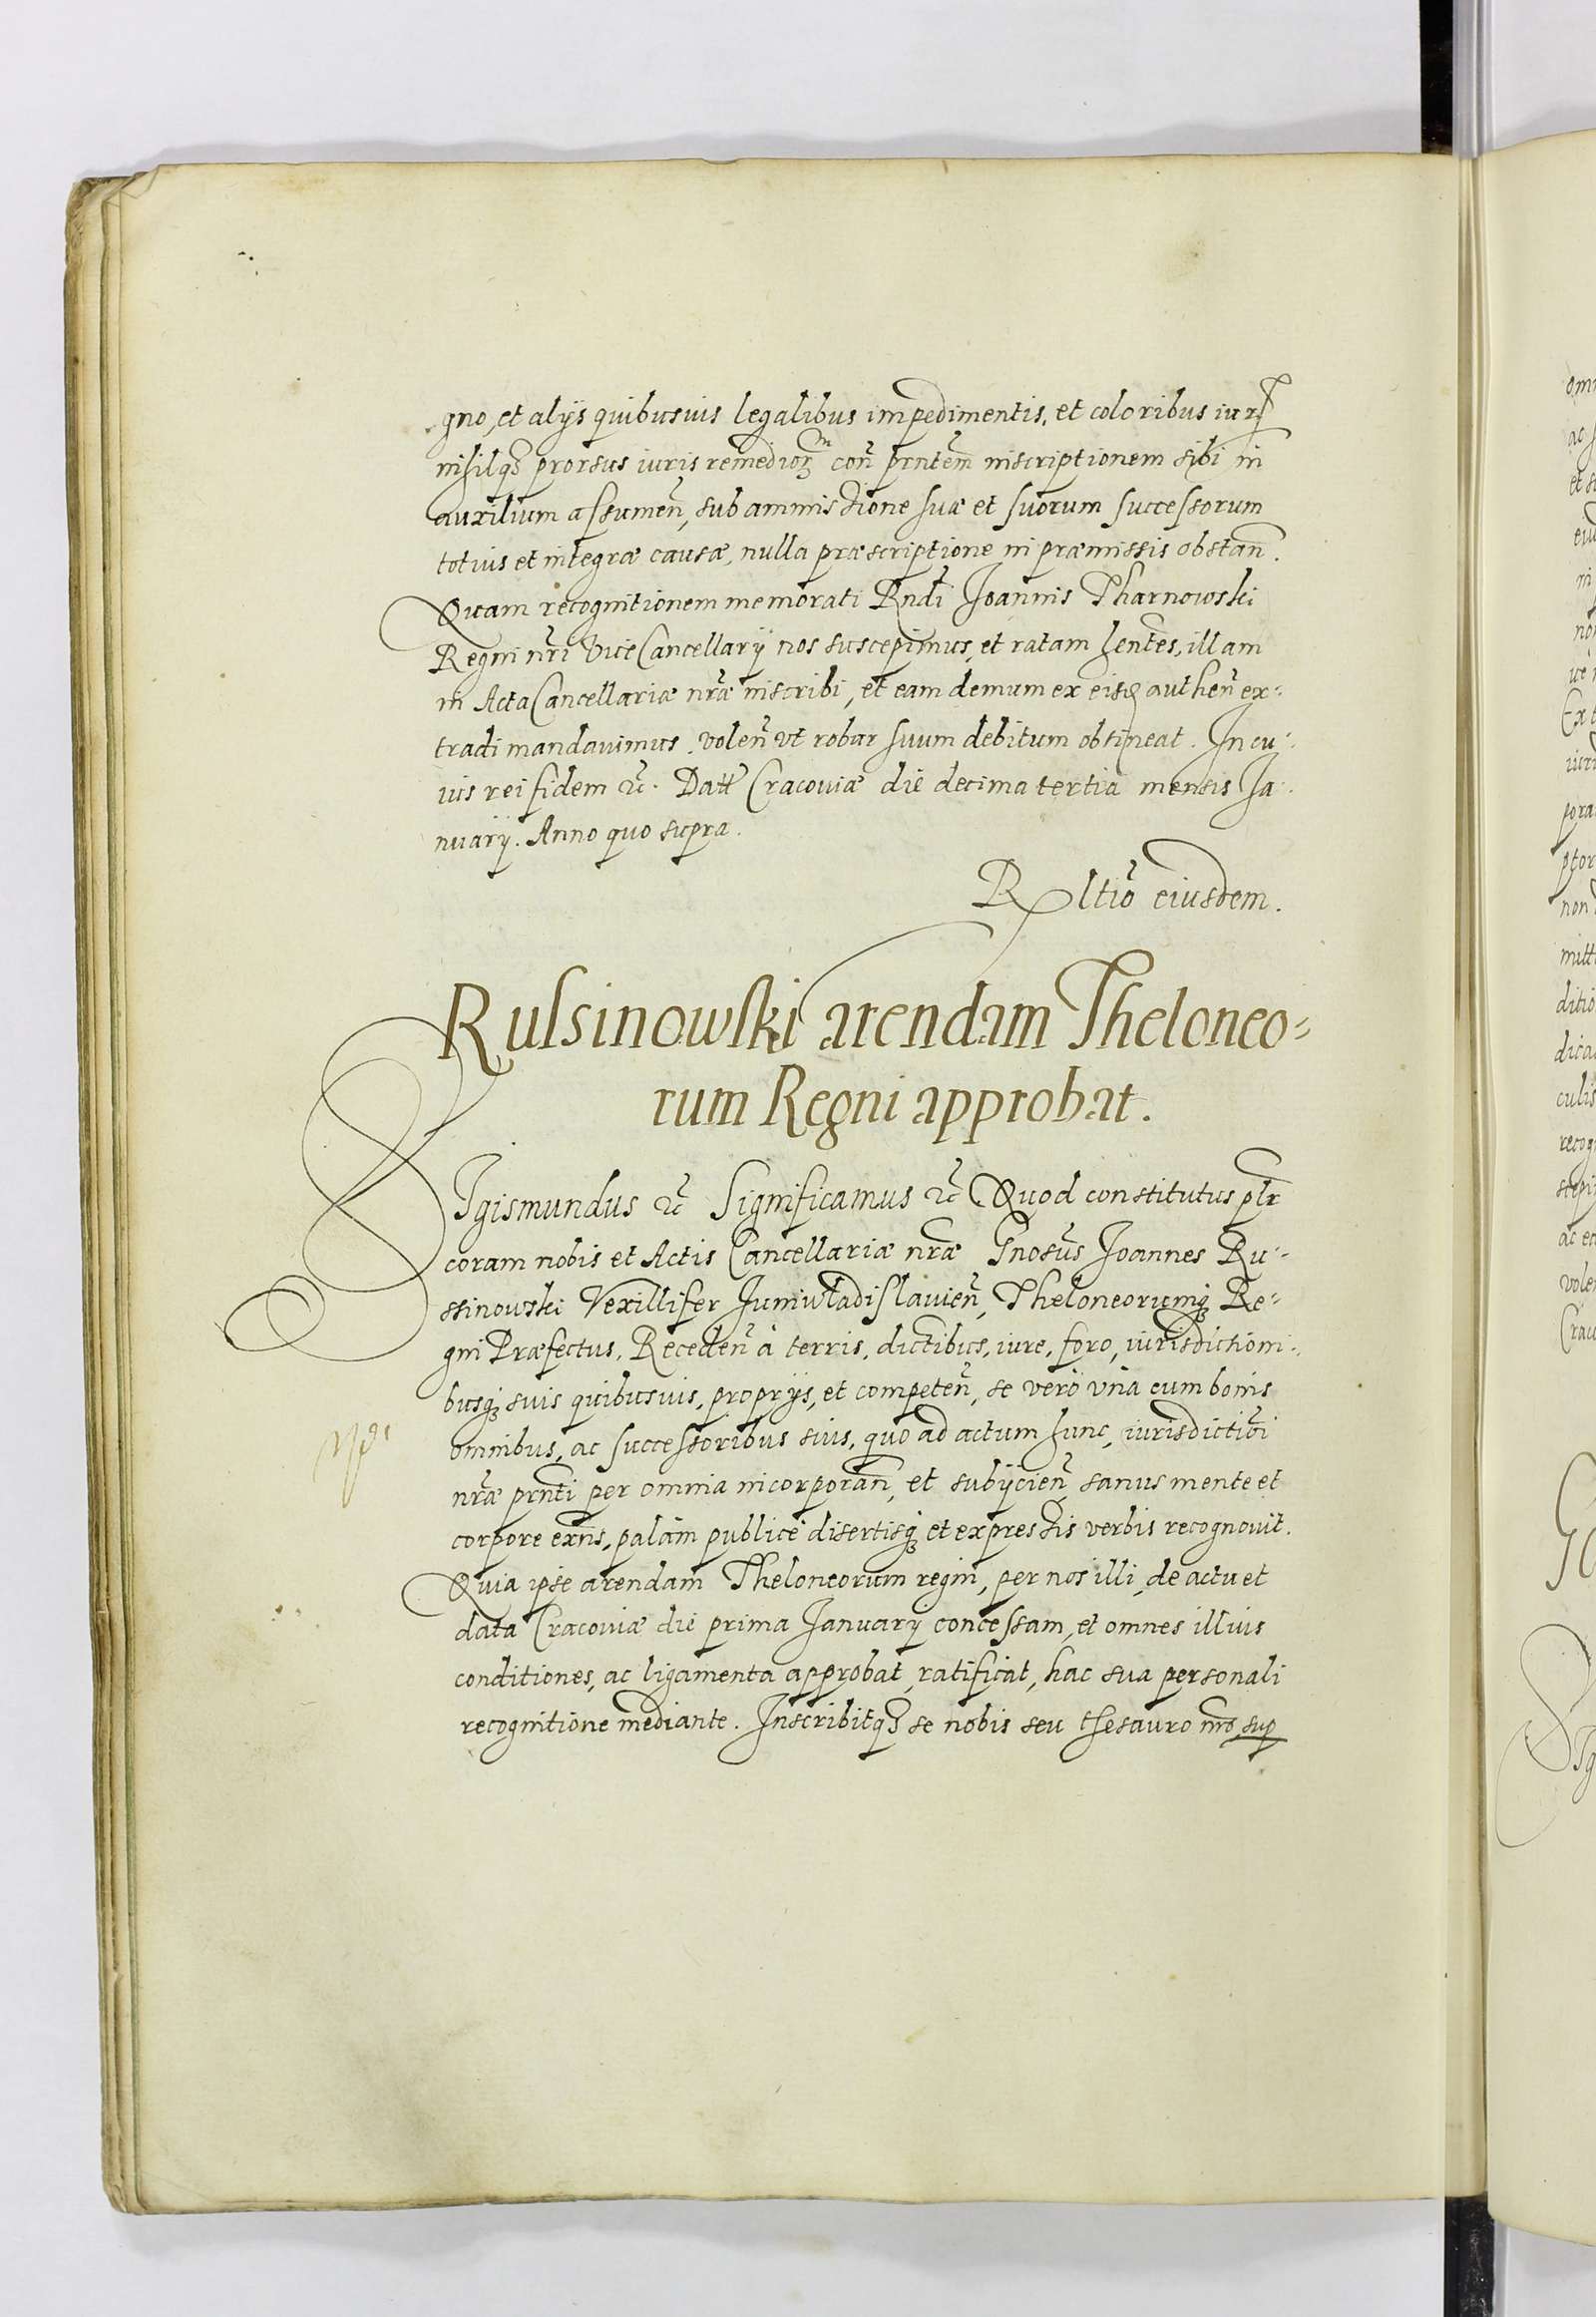 gno, et alijs quibusuis legalibus impedimentis, et coloribus iur
nihilqʒ prorsus iuris remediorꝫ con̄ prn̄tem inscriptionem sibi in
auxilium assumen̄, sub ammissione suæ et suorum successorum
totius et integræ causæ, nulla præscriptione in præmissis obstan̄.
Quam recognitionem memorati Rndi Joannis Tharnowski
Regni nr̄i ViceCancellarij nos suscepimus, et ratam hentes, illam
in Acta Cancellariæ nr̄æ inscribi, et eam demum ex eisd authen̄ ex-
tradi mandauimus. volen̄ vt robur suum debitum obtineat. In cu-
ius rei fidem ꝛc̄. Datt Cracouiæ die decima tertia mensis Ja-
nuarij. Anno quo supra.
Rltio eiusdem.
Russinowski arendam Theloneo-
rum Regni approbat.
SIgismundus ꝛc̄ Significamus ꝛc̄ Quod constitutus plr
coram nobis et Actis Cancellariæ nr̄æ Gnosus Joannes Ru-
ssinowski Vexillifer Juniwladislauien̄, Theloneorumqʒ Re-
gni Præfectus, Receden̄ à terris, dictibus, iure, foro, iurisdictioni-
busqʒ suis quibusuis, proprijs, et competen̄, se verò vnà cum bonis
omnibus, ac successoribus suis, quo ad actum hunc, iurisdictioni
nr̄æ prn̄ti per omnia incorporan̄, et subijcien̄, sanus mente et
corpore exn̄s, palàm publicè disertisqʒ et expressis verbis recognouit.
Quia ipse arendam Theloneorum regni, per nos illi, de actu et
data Cracouiæ die prima Januarij concessam, et omnes illius
conditiones, ac ligamenta approbat, ratificat, hac sua personali
recognitione mediante. Inscribitqʒ se nobis seu thesauro nr̄o, sup